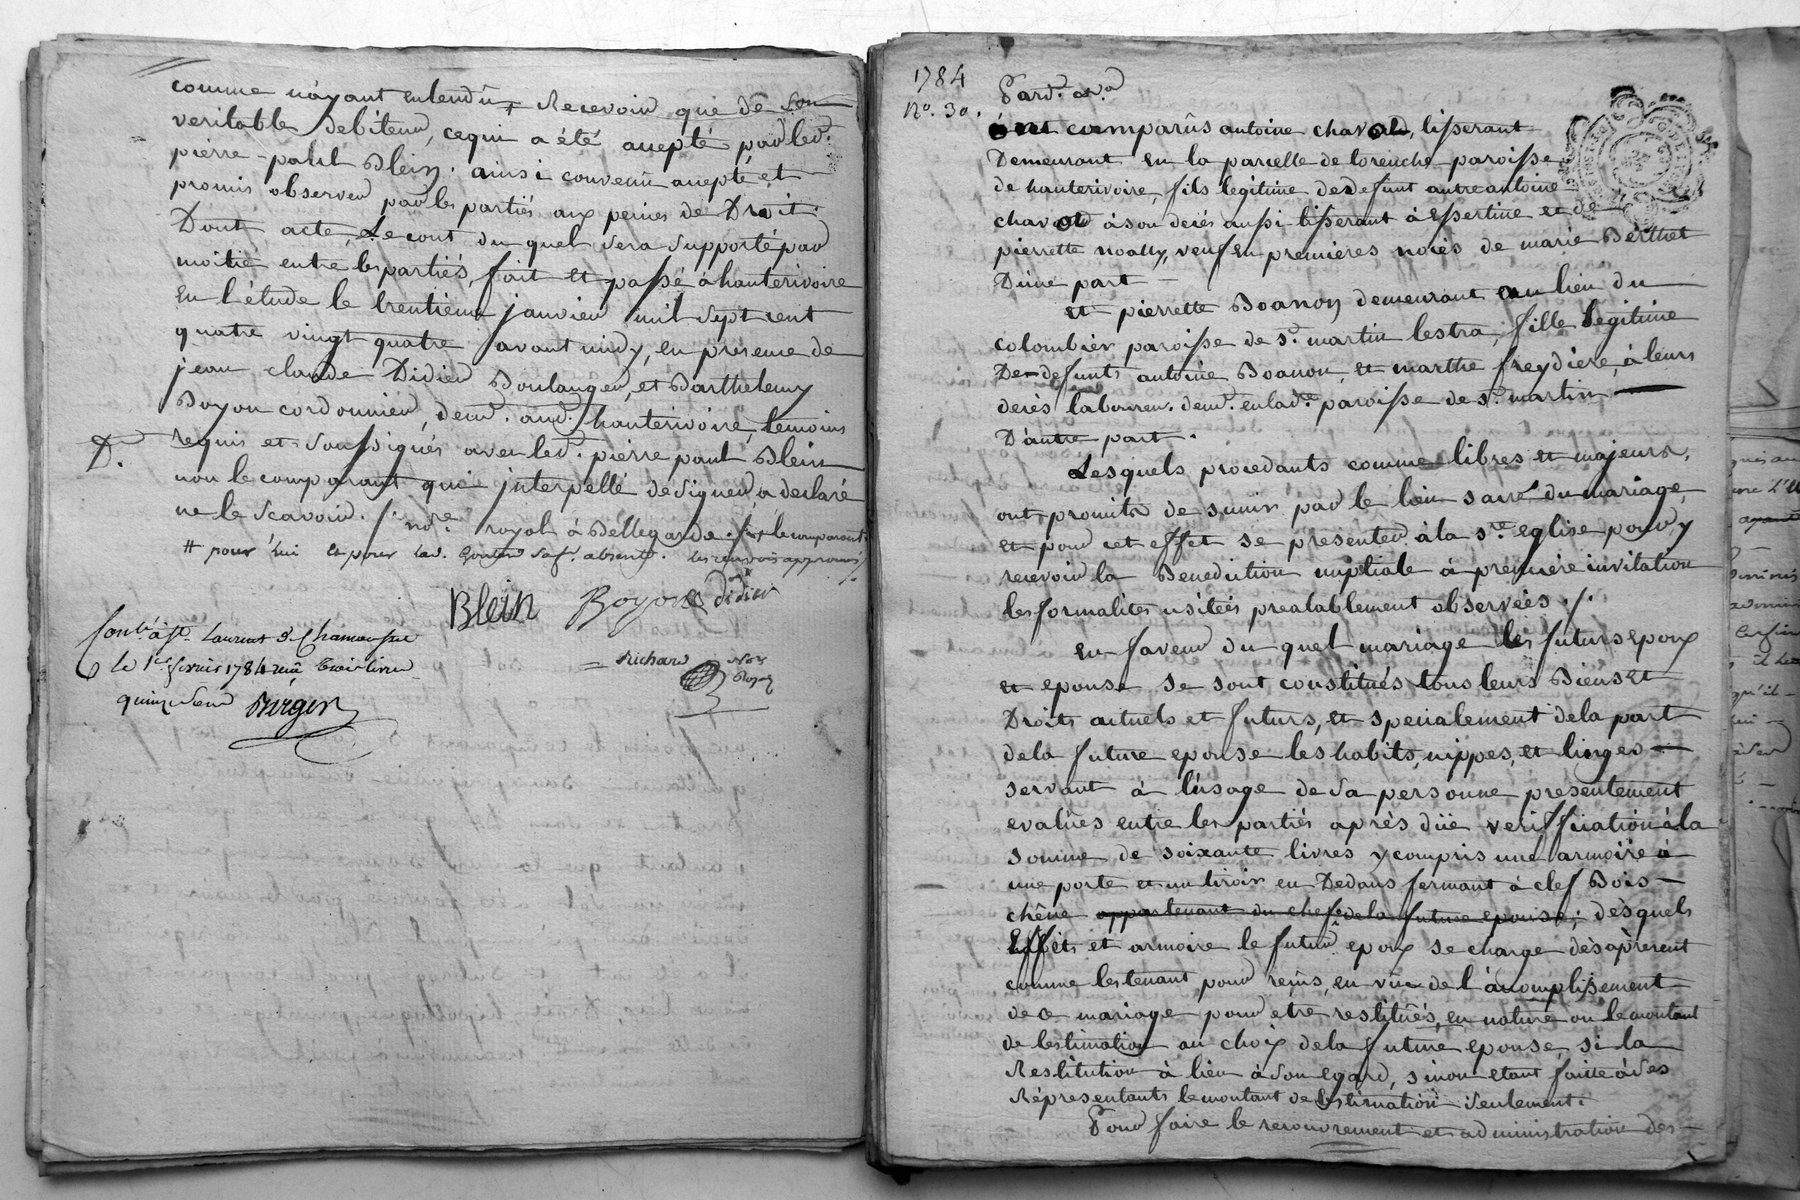 comme n'ayant entendû Recevoir que de son
veritable debiteur, cequi a été accepté par led.
pierre-paul Blein. ainsi convenû accepté et
promis observer par les partiés aux peines de Droit.
Dont acte, Le cout du quel sera supporté par
moitié entre les partiés, fait et passé à hauterivoire
en l'étude le trentieme janvier mil sept cent
quatre vingt quatre avant midy, en presence de
jean claude Didier Boulanger, et Barthelemy
Boyon cordonnier, demt. aud. hauterivoire, temoins
requis et soussignés avec led. pierre paul Blein
non le comparant qui interpellé de signer a declaré
ne le scavoir. nore. royal à Bellegarde. le comparant
# pour lui et pour lad. absente. les renvois approuvés
Blein Boyon didier
Cont. à st. Laurent de Chamousset
le 1er fevrier 1784 reçu trois livres
quinze sous
Richard Nore Royal
D.
1784
No. 30.
Pard. 
comparûs antoine chavand, tisserant
Demeurant en la parcelle de torenche paroisse
de hauterivoire, fils legitime de defunt autre antoine
chavand à son decés aussi tisserant à Essertine et de
pierrette noally, veuf en premières noces de marie Berthet
D'une part
et pierrette Boanon demeurant au lieu du
colombier paroisse de st. martin lestra, fille legitime
De defunts antoine Boanon et marthe freydiere, à leurs
decés laboureur. demt. en lad. paroisse de st. martin
D'autre part.
Lesquels procedants comme libres et majeurs,
ont promits de s'unir par le lien sacré du mariage,
et pour cet effet se presenter à la ste. eglise pour y
recevoir la Benediction nuptiale à première invitation
les formalités usitées prealablement observeés ./.
En faveur du quel mariage les futurs epoux
et epouse se sont constitués tous leurs Biens et
Droits actuels et futurs, et specialement dela part
dela future epouse les habits, nippes, et linges
servant à l'usage de sa personne presentement
evalûes entre les partiés après dûe veriffication à la
somme de soixante livres y compris une armoire à
une porte et un tiroir en Dedans fermant à clef Bois
chêne appartenant du chef dela future epouse; desquels
Effets et armoire le futur epoux se charge dès àpresent
comme les tenant pour reçûs, en vûe de l'àcomplissement
de ce mariage pour etre restitués, en nature ou le montant
de lestimation au choix dela future epouse si la
Restitution à lieu à son egard, sinon etant faitte à ses
Représentants le montant de lestimation seulement.
Pour faire le recouvrement et administration des